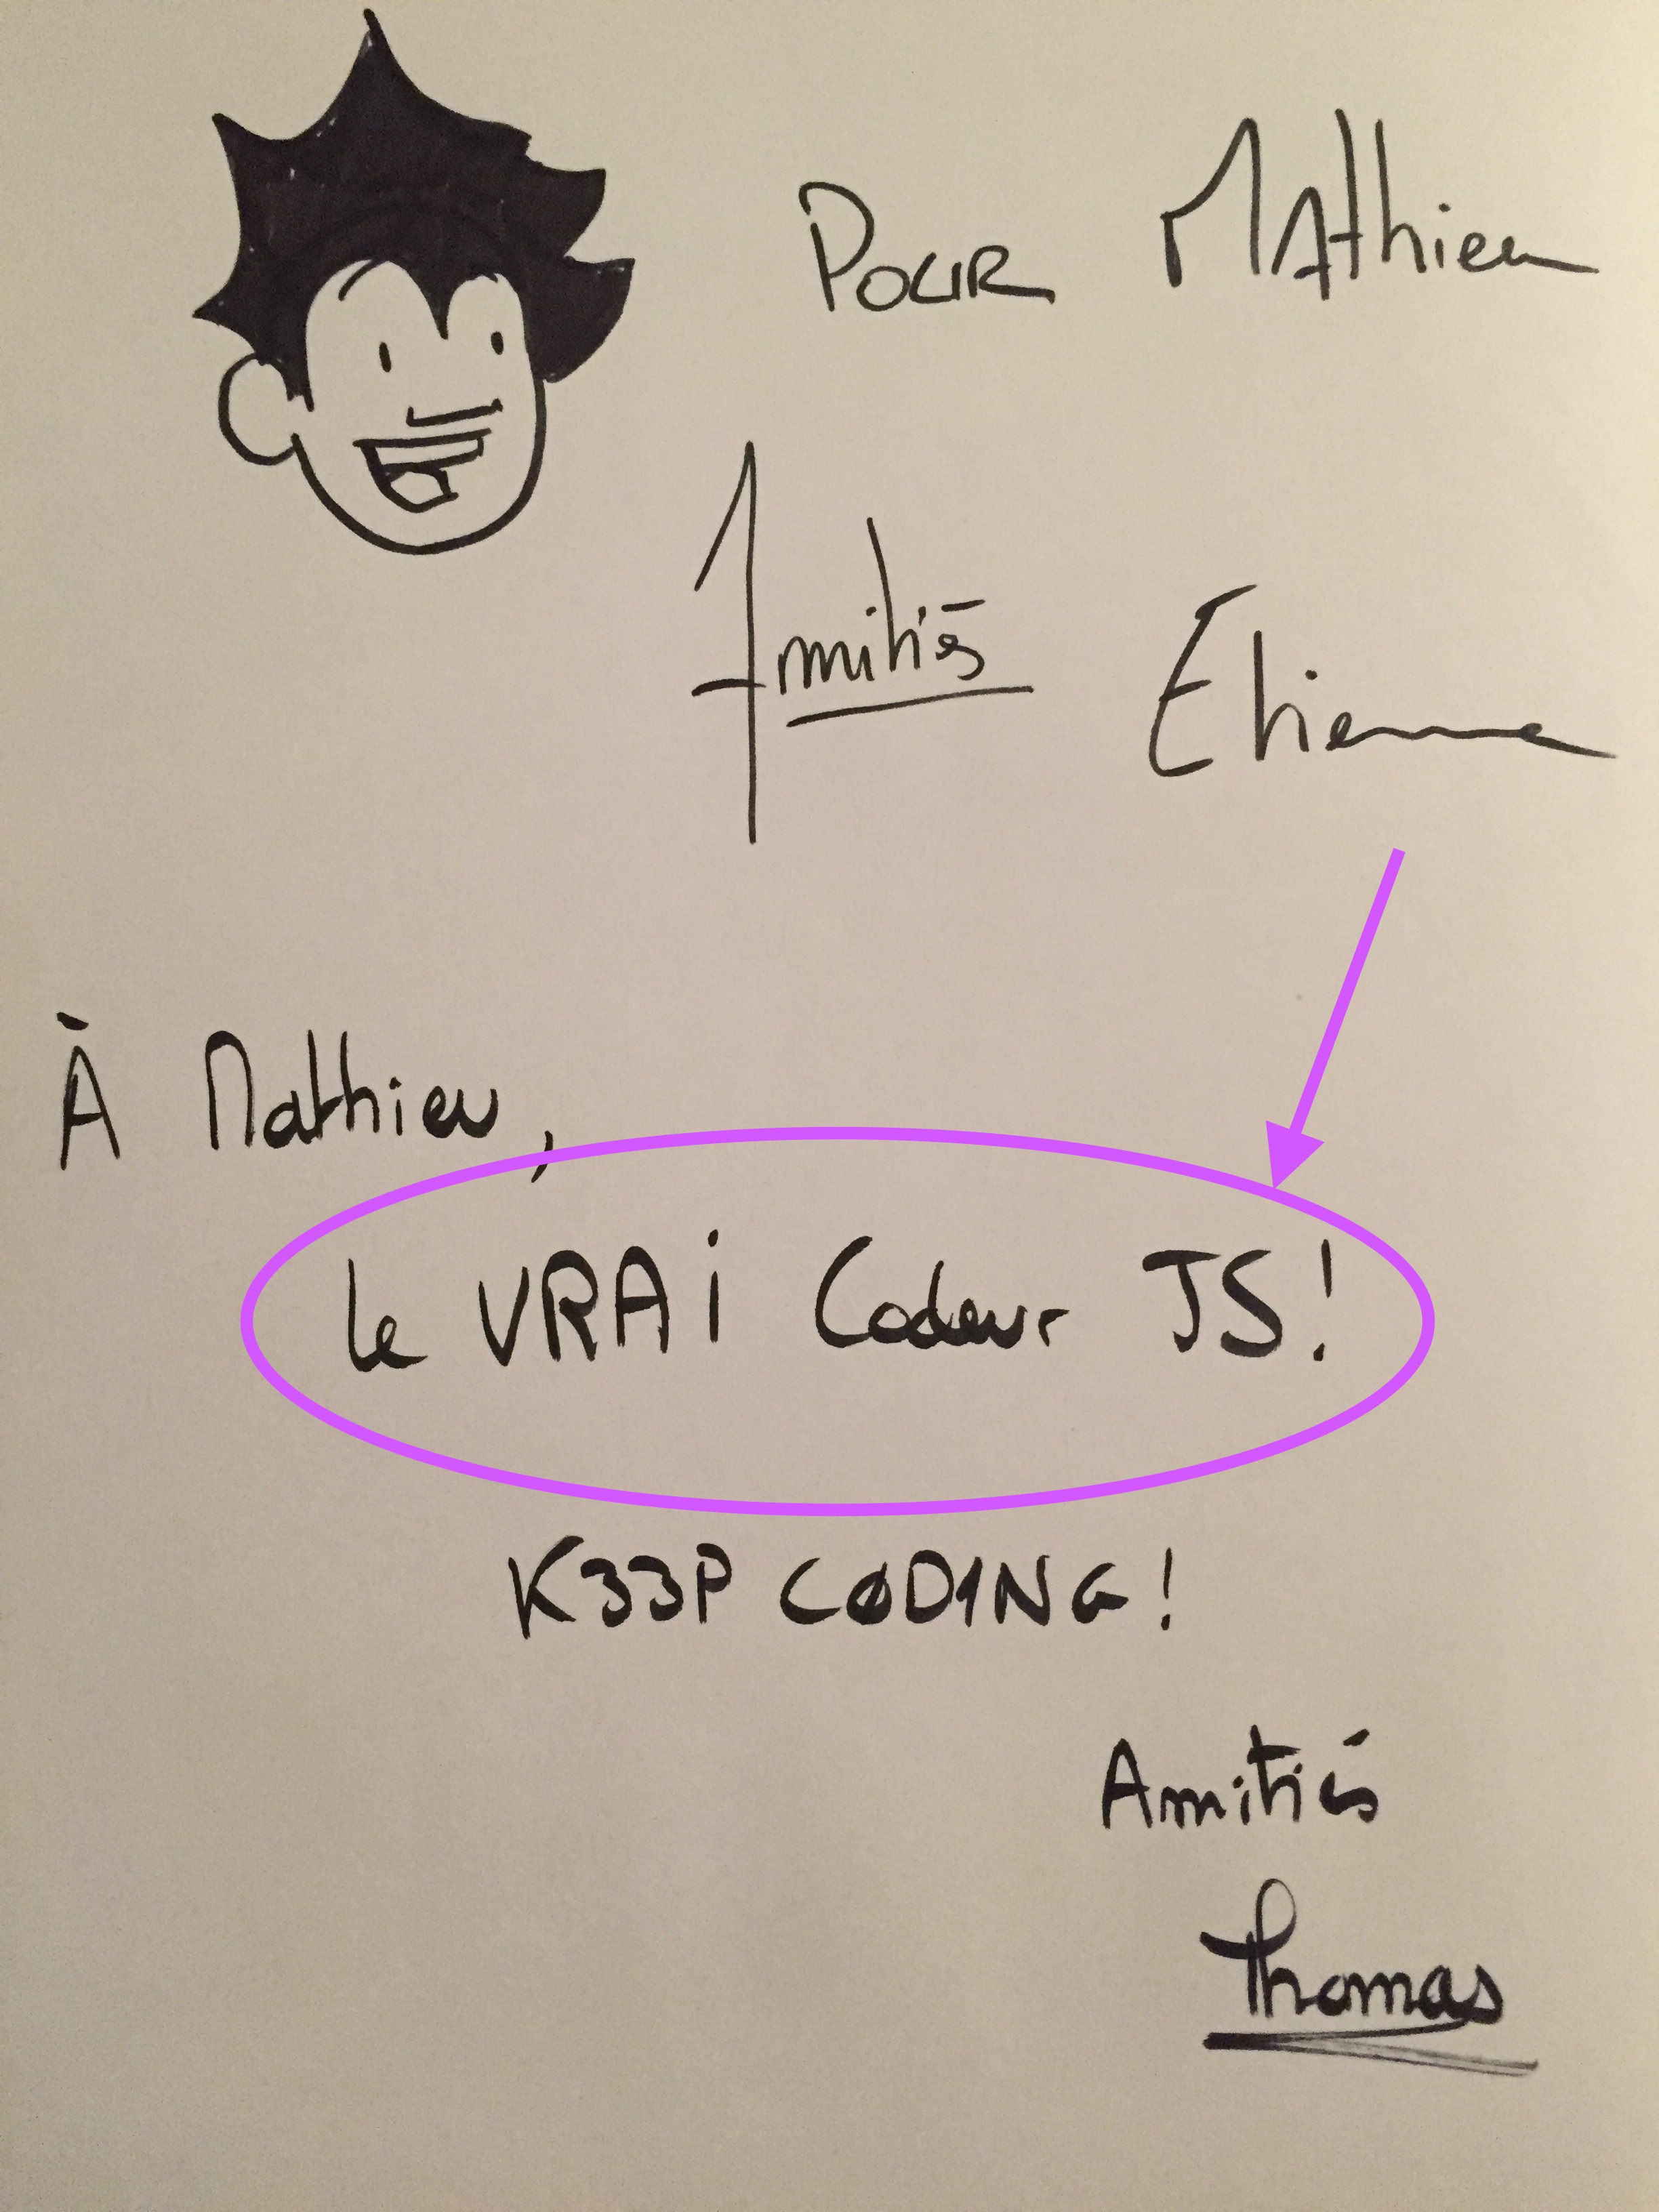 Pour Mathieu
Amitiés Etienne
À Mathieu,
le VRAi Codeur JS!
K33P CØD1NG!
Amitiés
Thomas